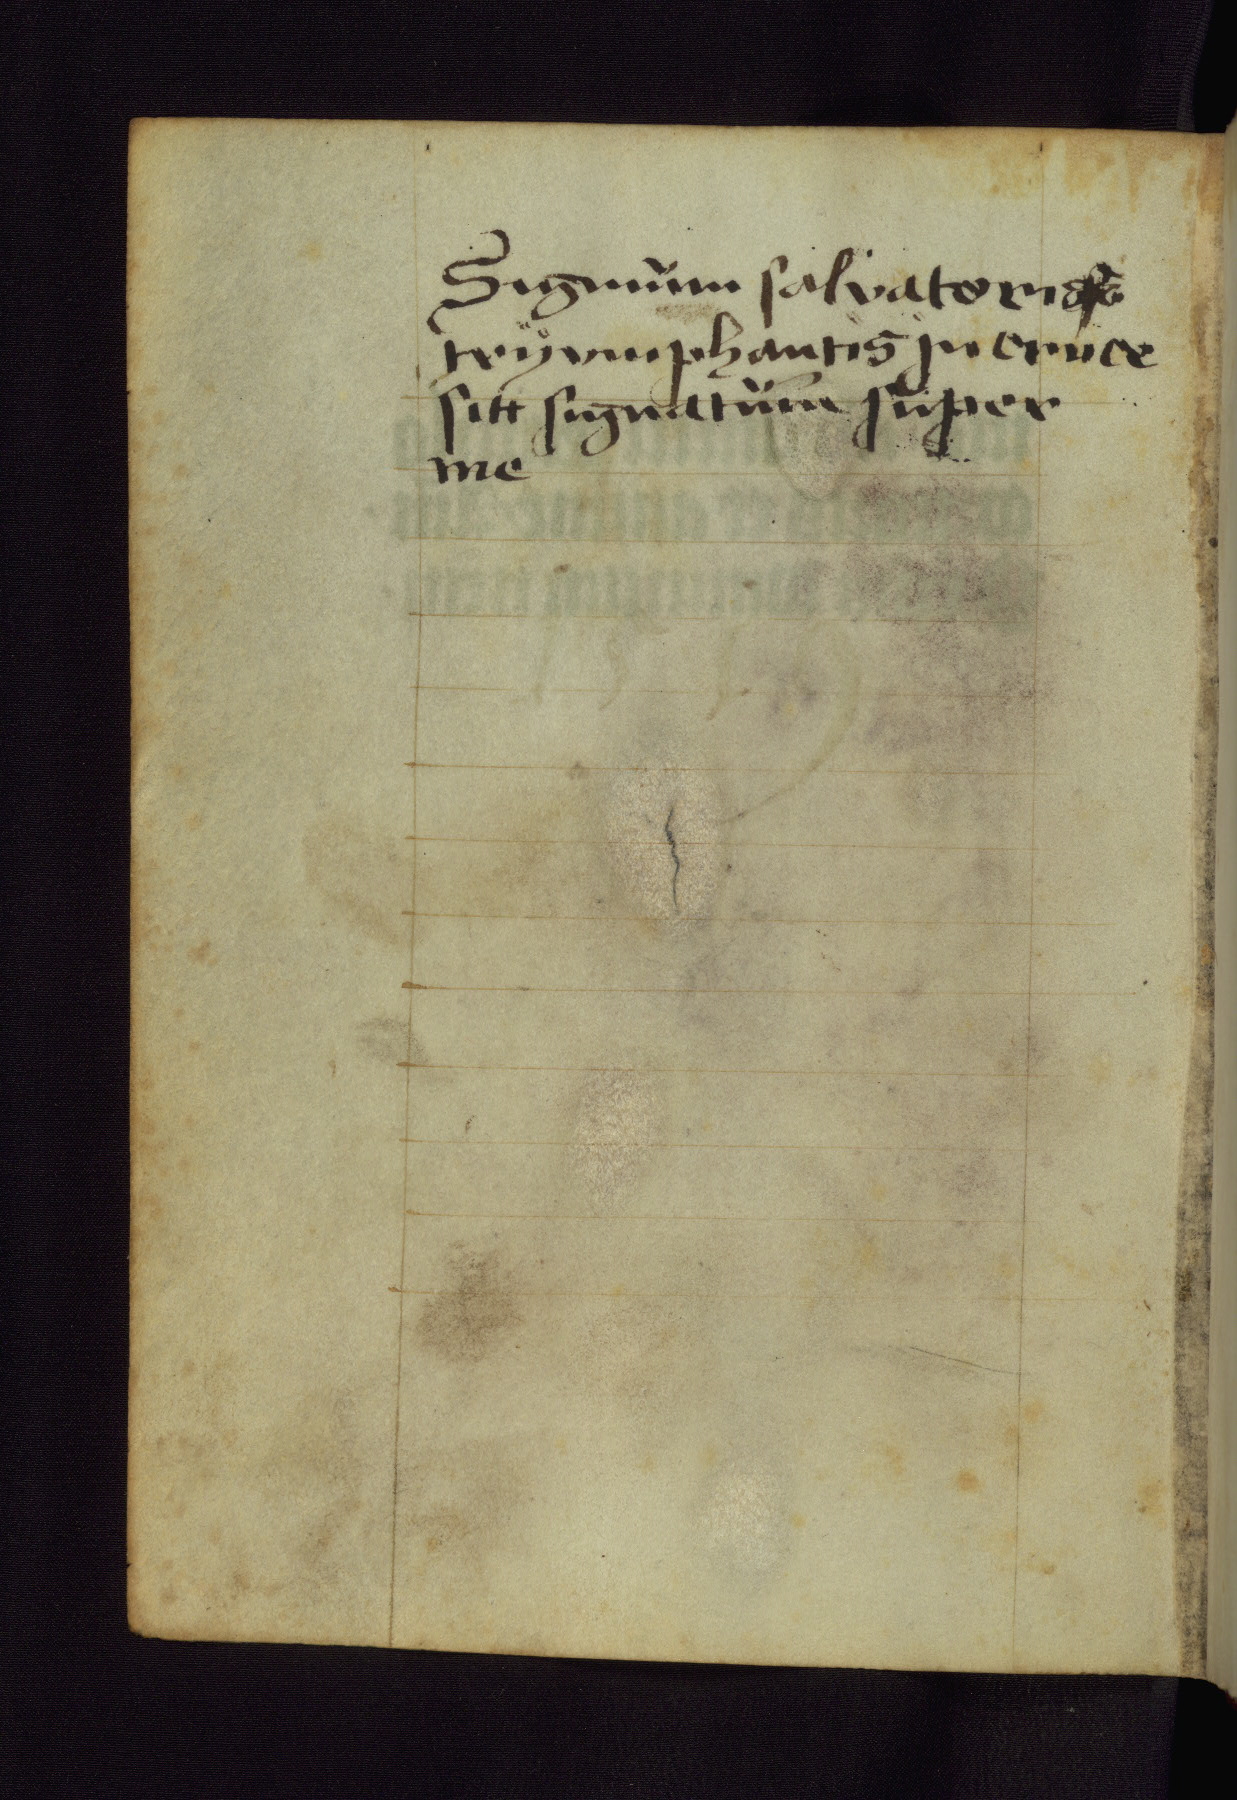 Signŭm salvatoris
trÿvmphantis jn cruce
sitt signatŭm sŭper
me